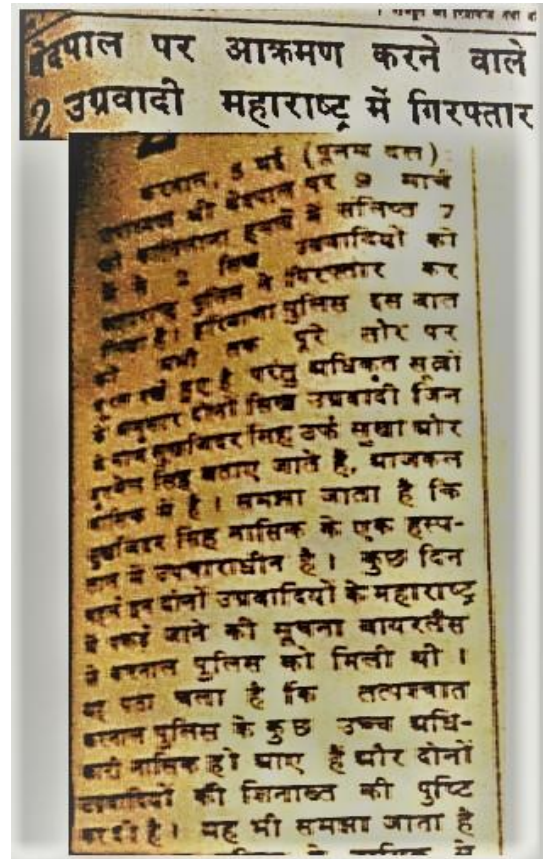 वेदपाल पर आक्रमण करने वाले
2 उग्रवादी महाराष्ट्र में गिरफ्तार
करनाल, 5 मई (पूनम दत्त)
श्री वेदपाल पर 9 मार्च
में संलिप्त 7
में से 2 सिख उग्रवादियों को
महाराष्ट्र पुलिस ने गिरफ्तार कर
लिया है। हरियाणा पुलिस इस बात
को अभी तक पूरे तौर पर
हुए है परंतु अधिकृत सूत्रों
के अनुसार दोनों सिख उग्रवादी जिन
के नाम सुखविंदर सिंह उर्फ सुखा और
सिंह बताए जाते है, आजकल
नासिक में है। समझा जाता है कि
सुखविंदर सिंह नासिक के एक हस्प-
ताल में उपचाराधीन है। कुछ दिन
पहले इन दोनों उग्रवादियों के महाराष्ट्र
में पकड़े जाने की सूचना वायरलैस
से करनाल पुलिस को मिली थी।
यह पता चला है कि तत्पश्चात
करनाल पुलिस के कुछ उच्च अधि-
कारी नासिक हो आए हैं और दोनों
उग्रवादियों की शिनाख्त की पुष्टि
कर दी है। यह भी समझा जाता है